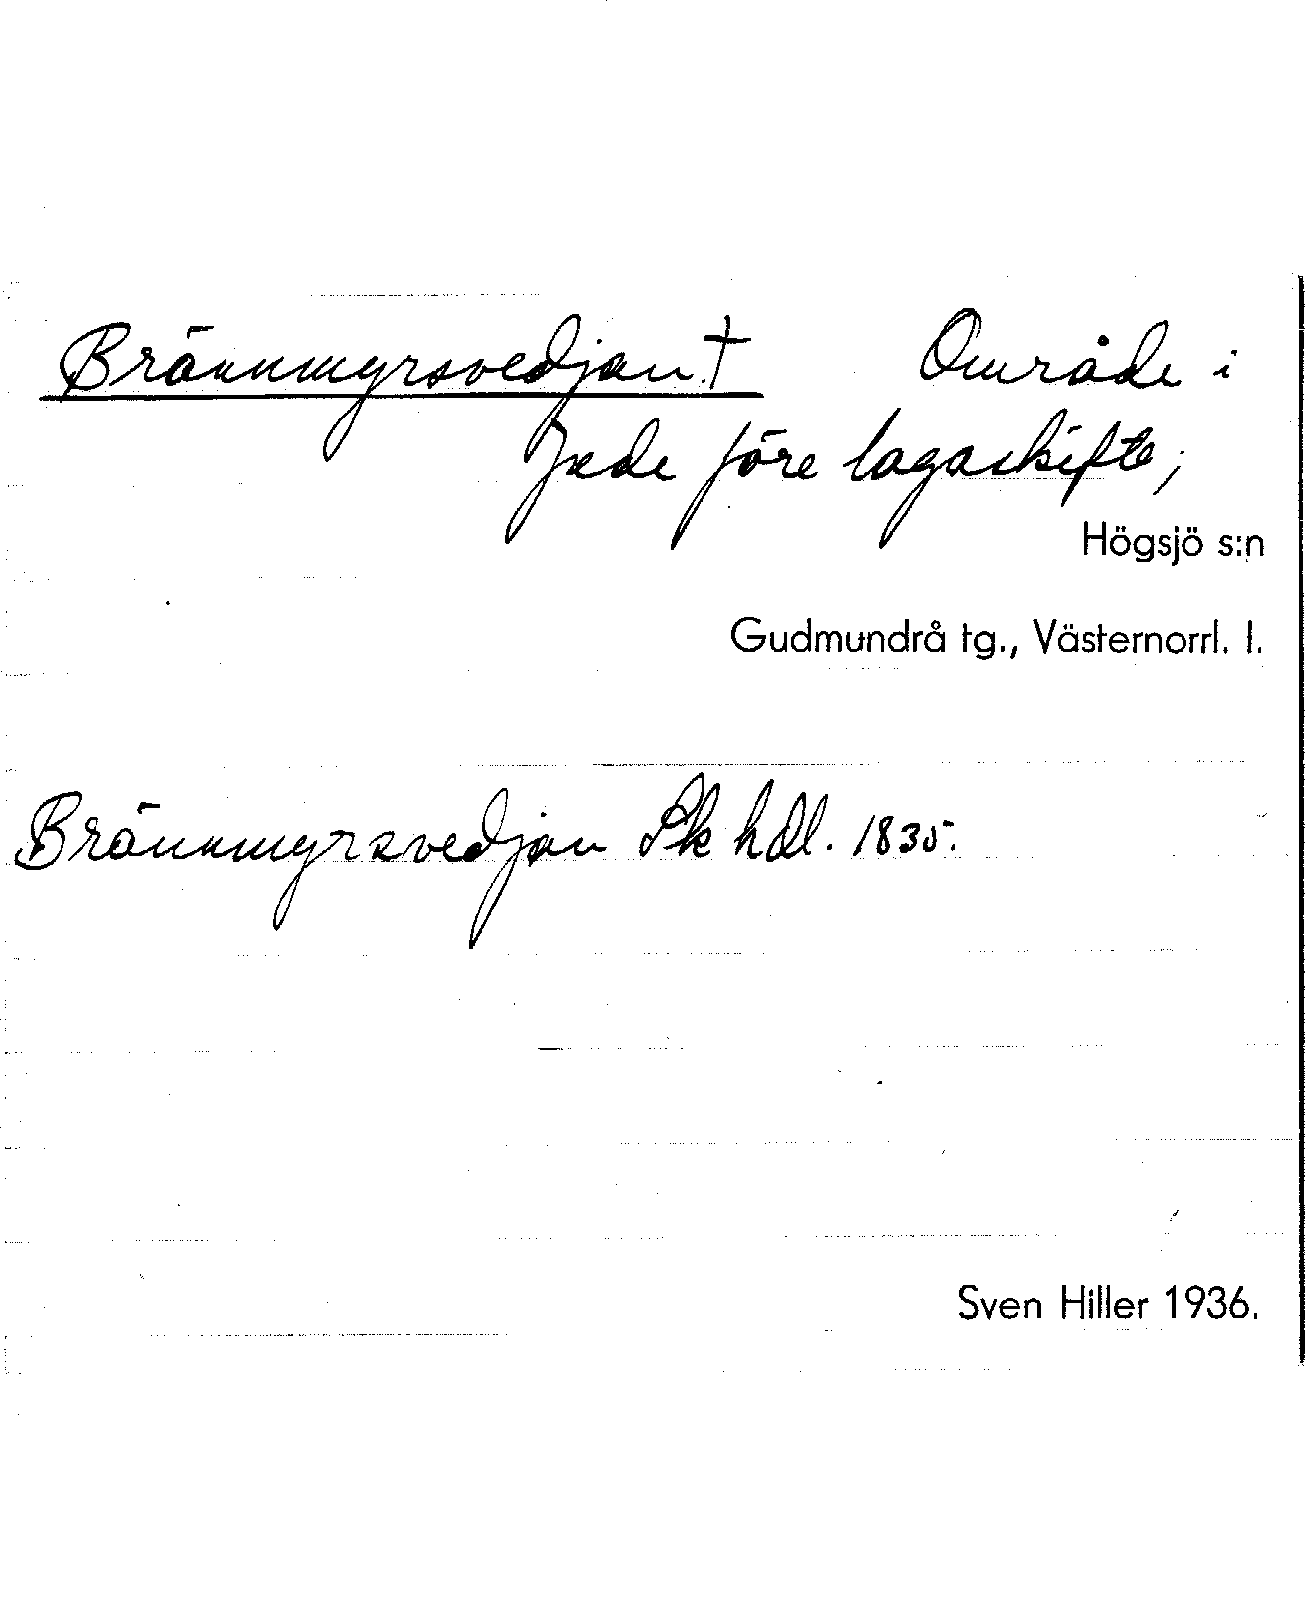 Brännmyrsvedjan † Område i
Jæde före lagaskifte;
Högsjö s:n
Gudmundrå tg., Västernorrl. l.
Brännmyrsvedjan Sk hdl. 1835.
Sven Hiller 1936.